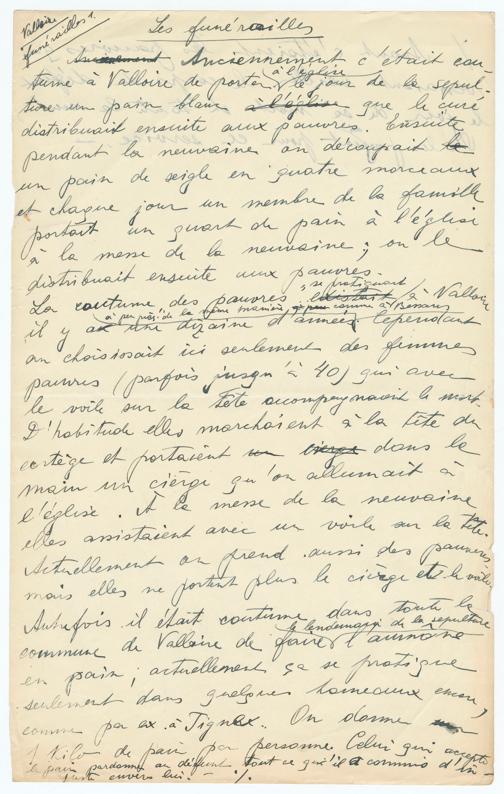 Valloire
funérailles 1.
Les funérailles
Anciennement c'était cou
tume à Valloire de porter à l'église le jour de la sépul-
ture un pain blanc à l'église que le curé
distribuait ensuite aux pauvres. Ensuite
pendant la neuvaine on découpait le
un pain de seigle en quatre morceaux
et chaque jour un membre de la famille
portait un quart de pain à l'église
à la messe de la neuvaine ; on le
distribuait ensuite aux pauvres.
La coutume des pauvres se pratiquait existait à Valloire
à peu près de la même manière comme à Bessans
il y a une dizaine d'années. Cependant
on choisissait ici seulement des femmes
pauvres (parfois jusqu'à 40) qui avec
le voile sur la tête accompagnaient le mort.
D'habitude elles marchaient à la tête du
cortège et portaient un cierge dans la
main un cièrge qu'on allumait à
l'église. À la messe de la neuvaine
elles assistaient avec un voile sur la tête.
Actuellement on prend aussi des pauvres
mais elles ne portent plus le cièrge et le voile
Autrefois il était coutume dans toute la
commune de Valloire de faire le lendemain de la sépulture l'aumône
en pain ; actuellement ça se pratique
seulement dans quelques hameaux encore,
comme par ex. à Tignex. On donne
1 Kilo de pain par personne. Celui qui accepte
le pain pardonne au défunt tout ce qu'il a commis d'in-
juste envers lui. — ./.